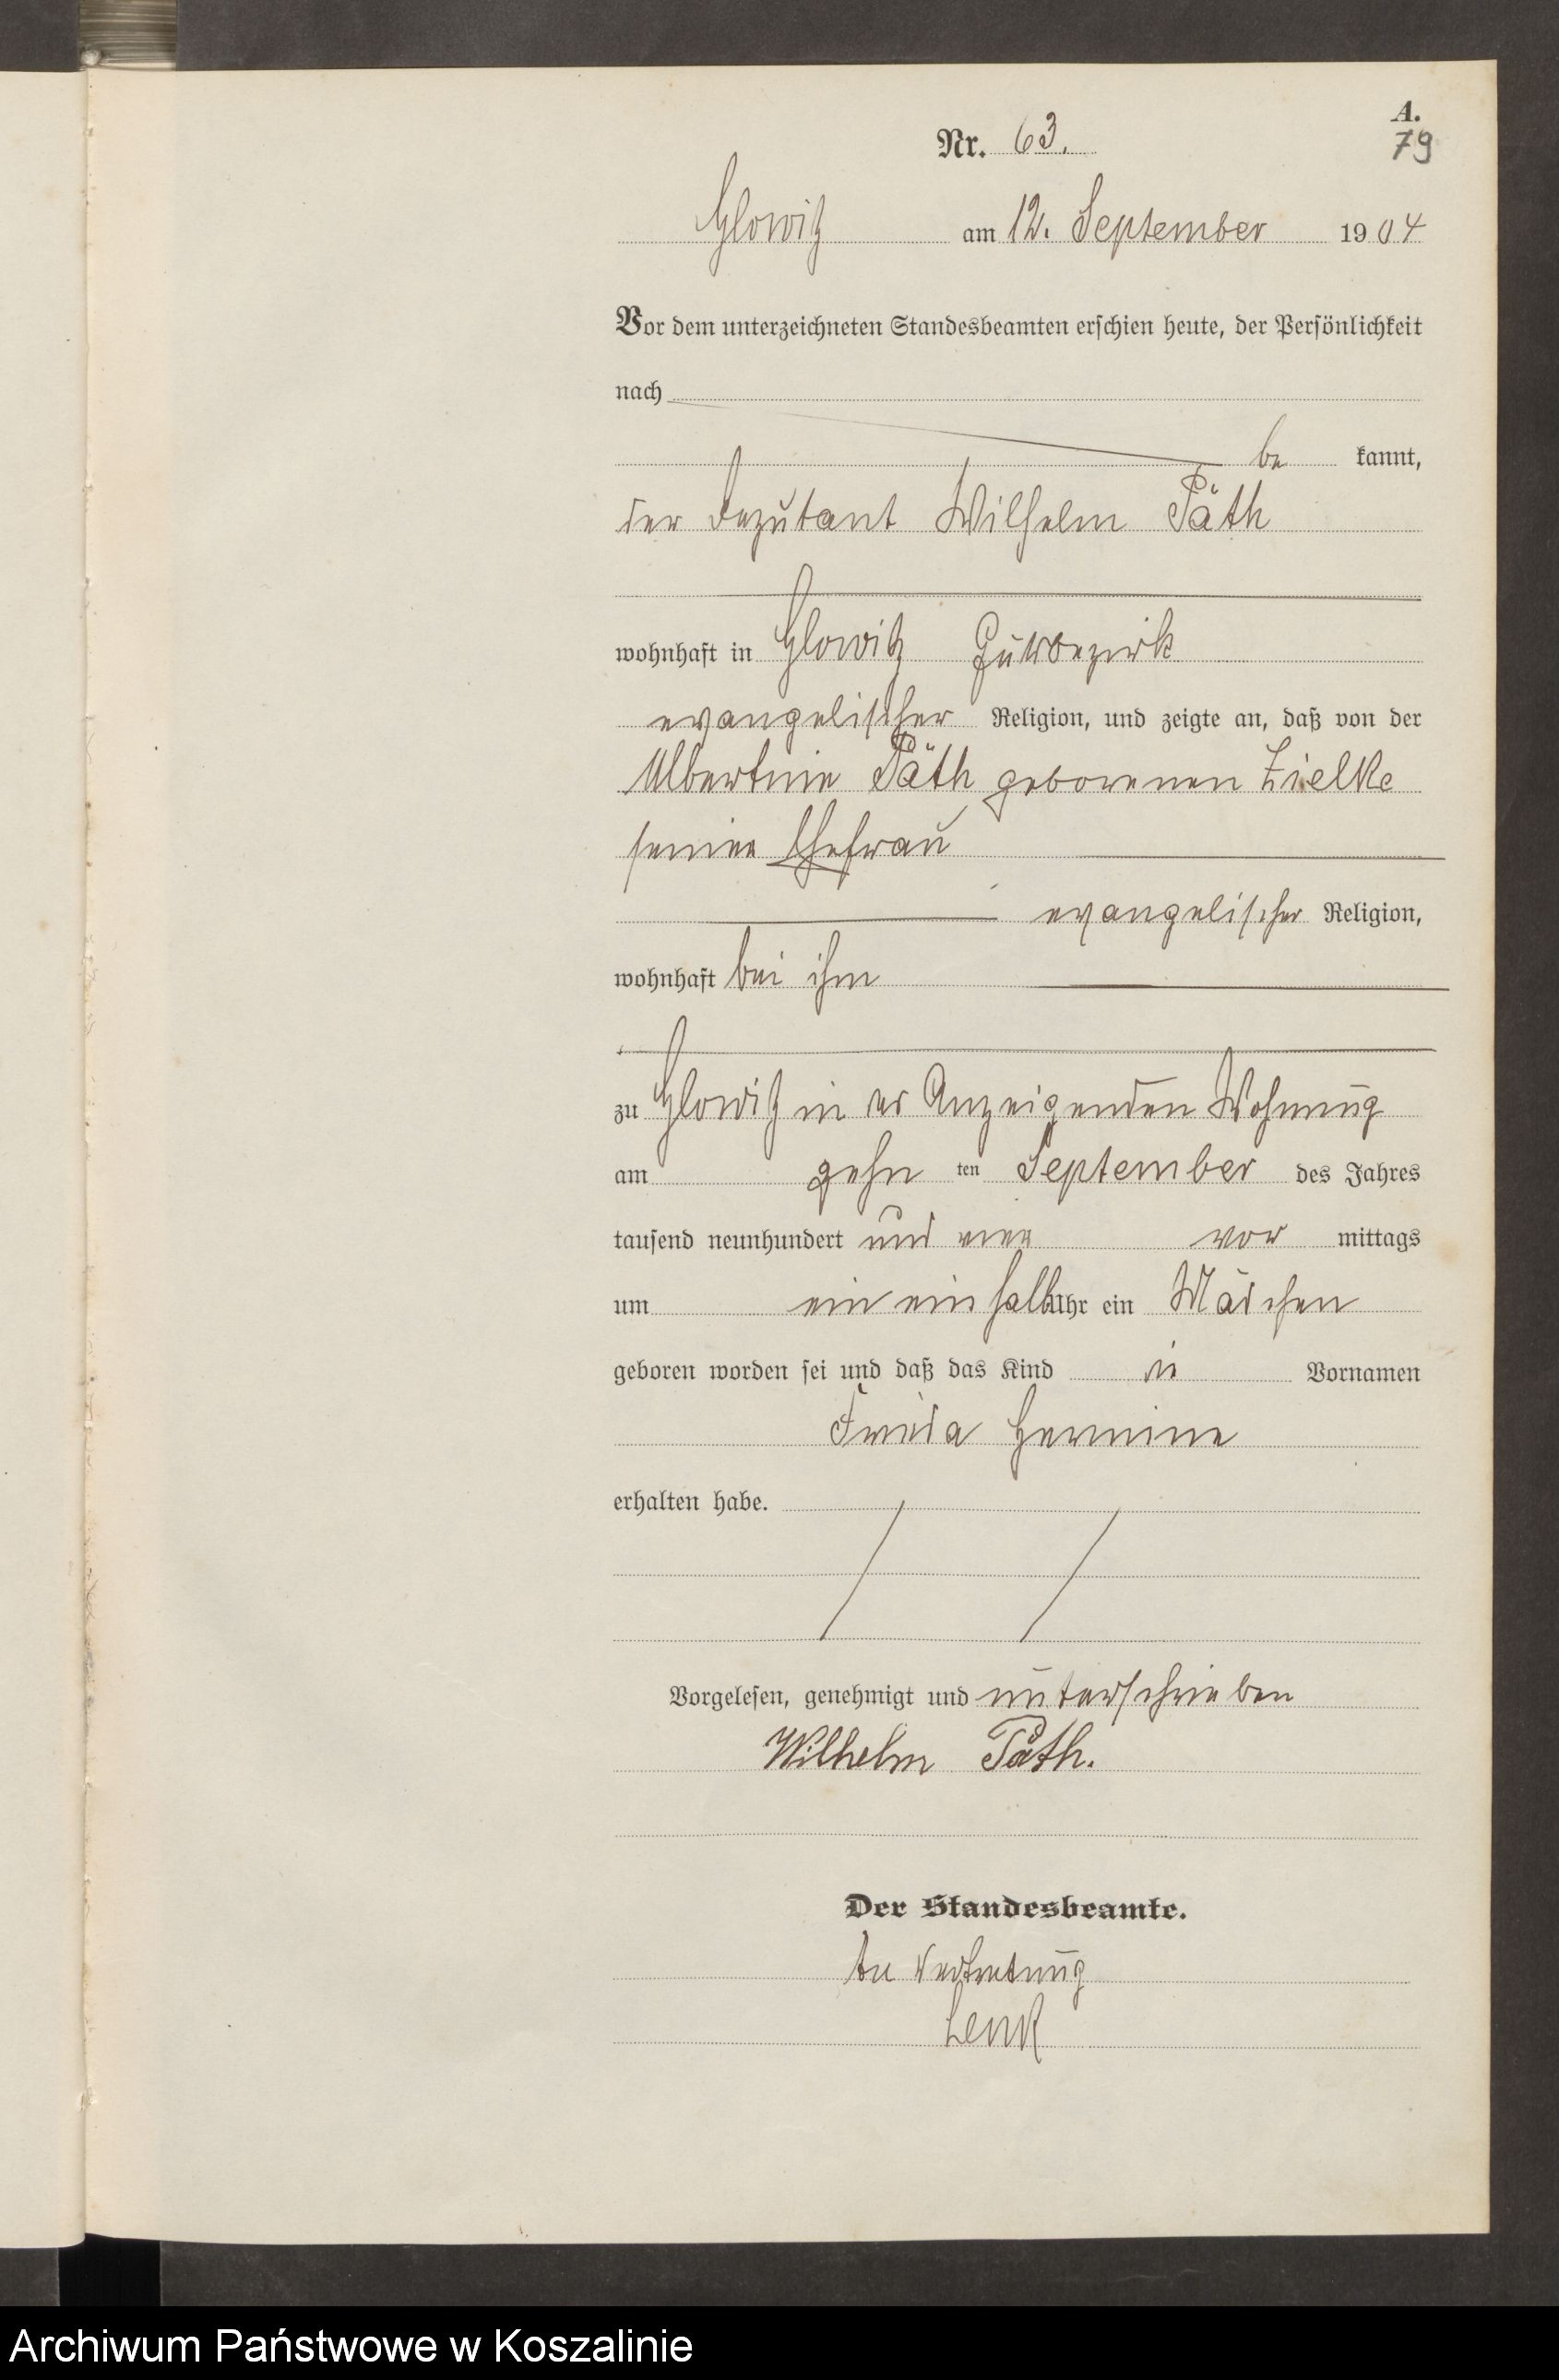 A.
Nr. 63.
79
Glowitz am 12. September 1904
Vor dem unterzeichneten Standesbeamten erschien heute, der Persönlichkeit
nach
be kannt,
der Deputant Wilhelm Päth
wohnhaft in Glowitz Gutsbezirk
evangelischer Religion, und zeigte an, daß von der
Albertine Päth geborenen Zielke
seiner Ehefrau
evangelischer Religion,
wohnhaft bei ihm
zu Glowitz in des Anzeigenden Wohnung
am zehn ten September des Jahres
tausend neunhundert und vier vor mittags
um ein ein halb Uhr ein Mädchen
geboren worden sei und daß das Kind die Vornamen
Frieda Hermine
erhalten habe.
Vorgelesen, genehmigt und unterschrieben
Wilhelm Päth.
Der Standesbeamte.
In Vertretung
Lenk
Archiwum Państwowe w Koszalinie